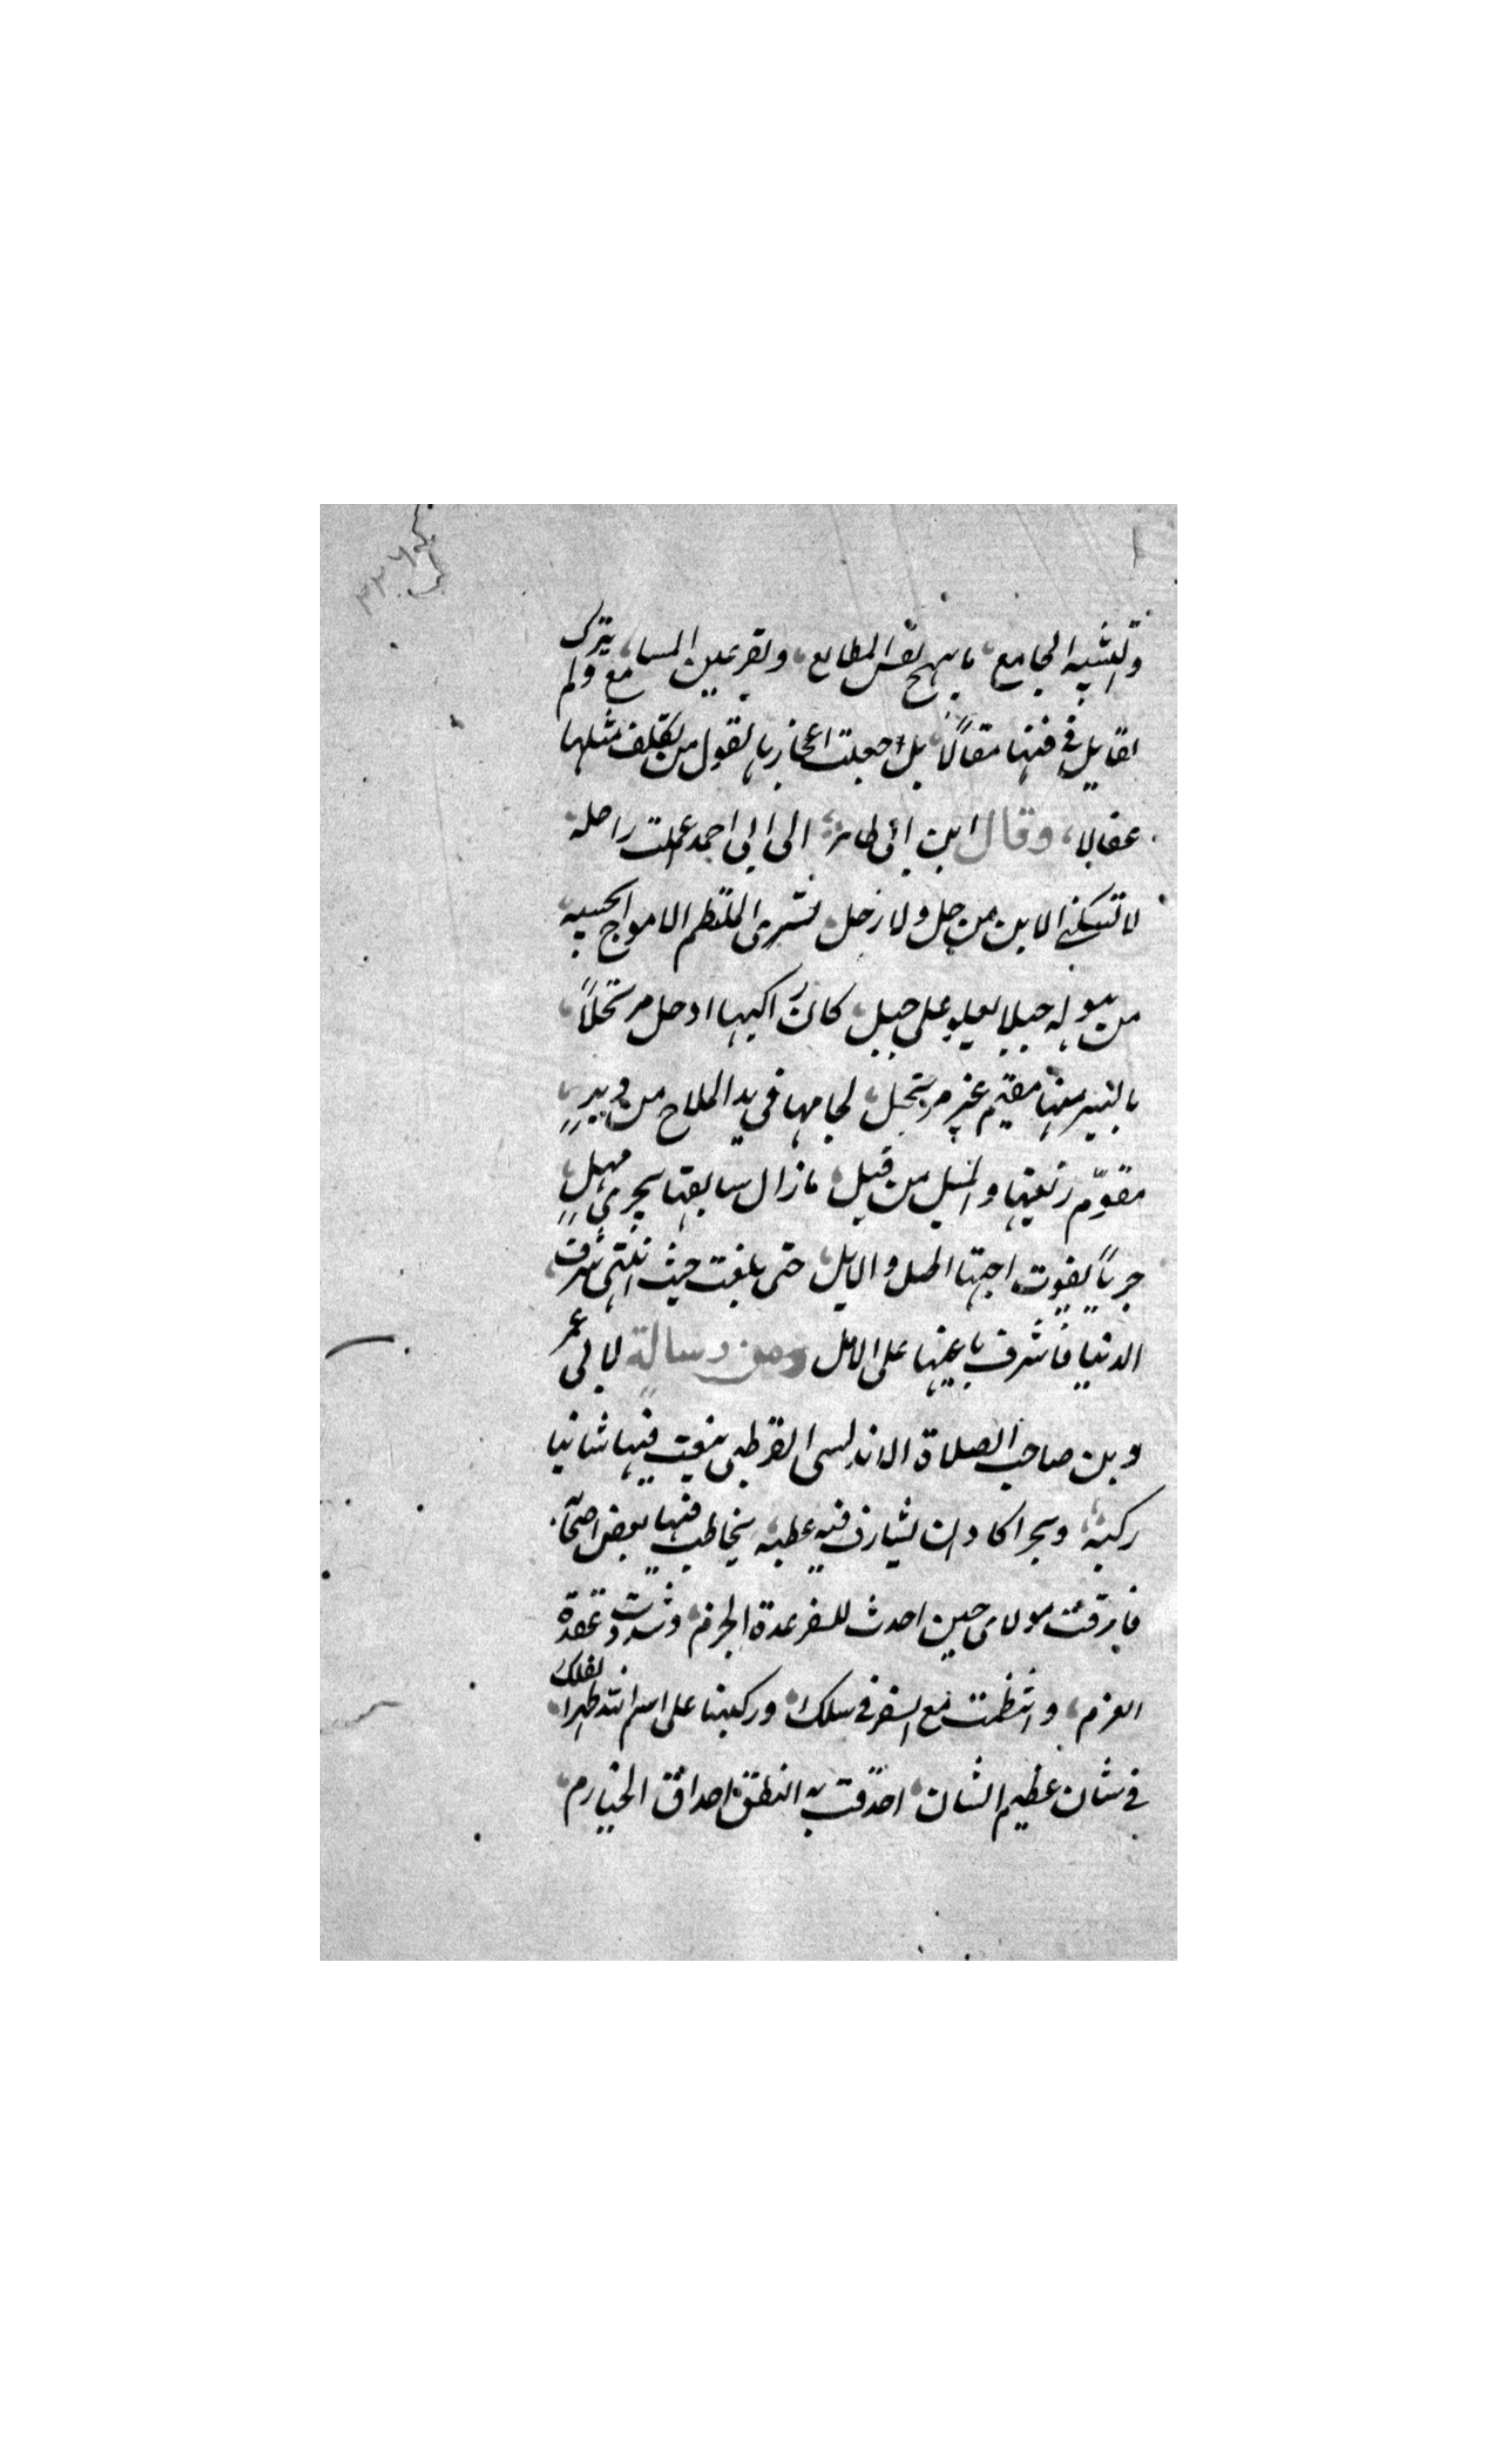 ٣٢٦
والتشبيه الجامع، ما يبهج نفس المطالع، ويقر عين المسامع ولم يترك
لقايل في فنها مقالا، بل جعلت اعجازها لقول من تكلف مثلها
عقالا، وقال ابن ابي طاهر، الى ابي احمد عملت راحلة
لا تشتكي الاين من حل ولا رحل تسري الملتطم الامواج تحسبه
من هوله جبلا يعلو على جبل، كان راكبها اذ حل مرتحلاً،
بالسير منها مقيم غير مرتحل، لجامها في يد الملاح من دبرٍ،
مقوّم زيغها والميل من قبل، ما زال سابقها يجري مهلٍ
جرياً يفوت اجتهاد الخيل والابل، حتى بلغت حيث انتهى شرف
الدنيا فاشرف باعيها على الامل ومن رسالة لابي عمر
وبن صاحب الصلاة الاندلسي القرطبي ينعت فيها شانيا
ركبه، وبحرا كاد ان يشارف فيه عطبه يخاطب فيها بعض اصحا.
فارقت مولاي حين احدث للسفر عدة الحزم، وشددت عقدة
العزم، وانتظمت مع السفر في سلك، وركبنا على اسم الله ظهر الفلك،
في شان عظيم الشان، احدقت به النطق احداق الحيازم،